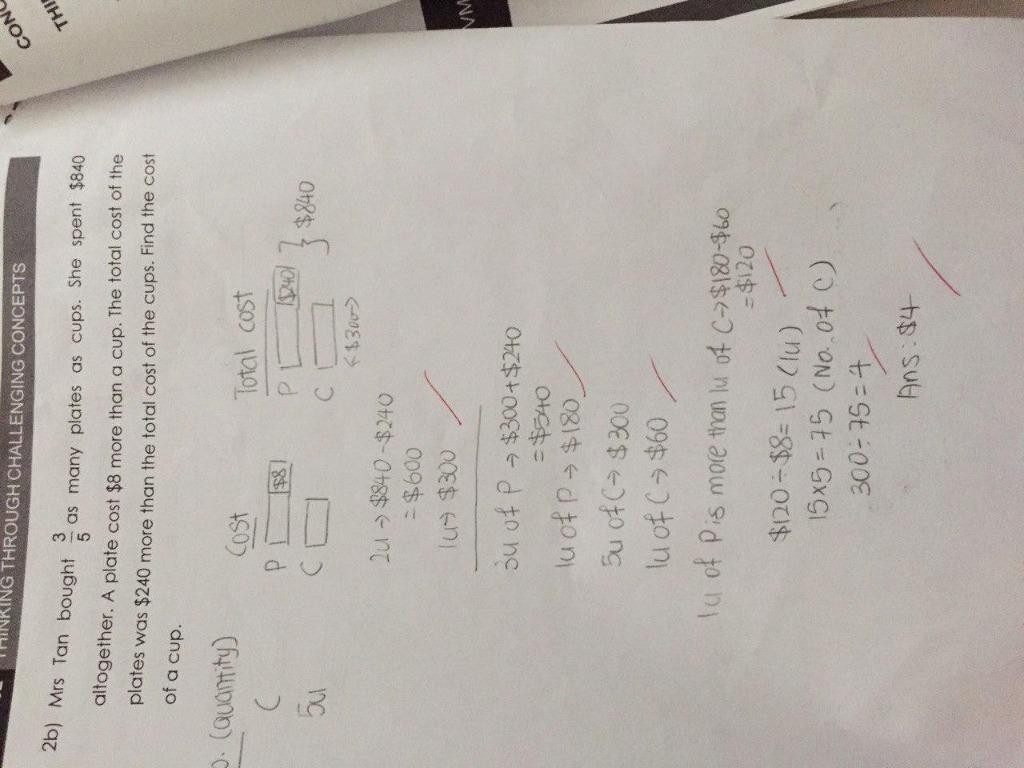 THINKING THROUGH CHALLENGING CONCEPTS
2b) Mrs Tan bought 3/5 as many plates as cups. She spent $840
altogether. A plate cost $8 more than a cup. The total cost of the
plates was $240 more than the total cost of the cups. Find the cost
of a cup.
(quantity)
C
5u
Cost
P $8
C
Total cost
P $240 } $840
C
<$300>
2u → $840-$240
= $600
1u → $300
3u of P → $300+$240
= $540
1u of P → $180
5u of C → $300
1u of C → $60
1u of P is more than 1u of C → $180-$60
= $120
$120÷$8=15 (1u)
15x5=75 (No. of C)
300÷75=4
Ans: $4
CONC
THI
VM